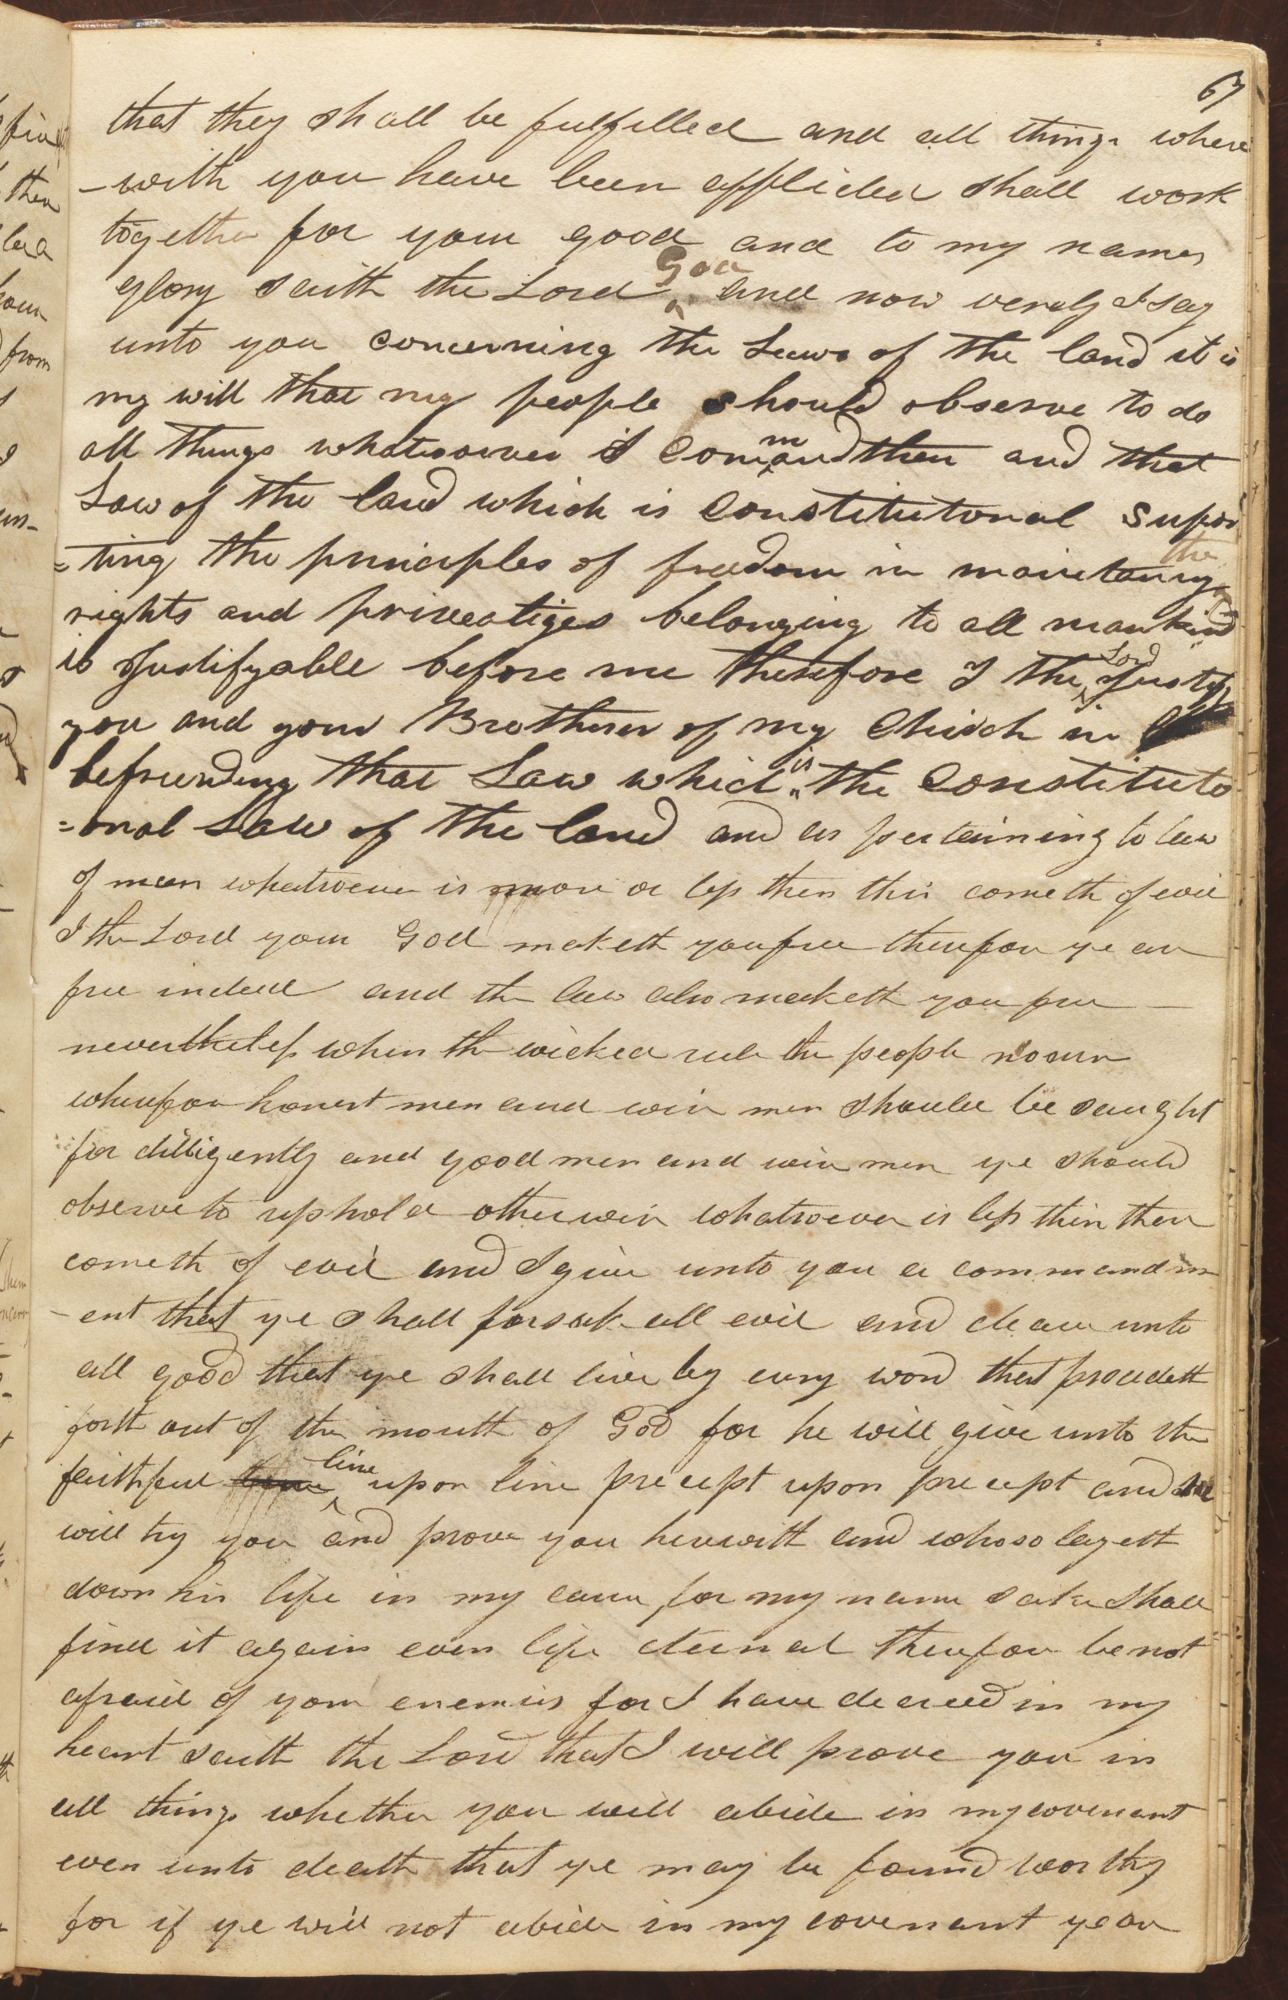 67
that they shall be fulfilled and all things where
-with you have been afflicted shall work
together for your good and to my names
glory saith the Lord God and now verely I say
unto you concerning the Laws of the land it is
my will that my people should observe to do
all things whatsoever I command them and that
Law of the land which is Constitutonal supor
=ting the principles of freedom in maintaning the
rights and priveatiges belonging to all mankind
is Justifyable before me therefore I the Lord Justify
you and your Brotheren of my Church in
befriending that Law which is the Constituto
=onal Law of the land and as pertaining to law
of men whatsoever is more or less then this cometh of evil
I the Lord your God maketh you free therefore ye are
free indeed and the law also maketh you free
nevertheless when the wicked rule the people mourn
wherefore honest men and wise men should be saught
for dilligently and good men and wise men ye should
observe to uphold otherwise whatsoever is less then these
cometh of evil and I give unto you a commandm
-ent that ye shall forsake all evil and cleave unto
all good that ye shall live by evry word that proceedeth
forth out of the mouth of God for he will give unto the
faithful line upon line precept upon precept and
will try you and prove you herewith and whoso layeth
down his life in my cause for my name sake shall
find it again even life eternal therefore be not
afraid of your enemies for I have decreed in my
heart saith the Lord that I will prove you in
all things whether you will abide in my covenant
even unto death that ye may be found worthy
for if ye will not abide in my covenant ye are